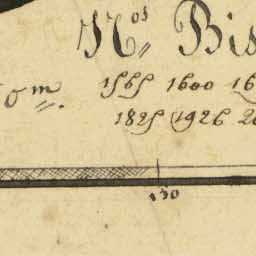 Nos Bis
om. 1565 1600 16
1825 1926 20
130